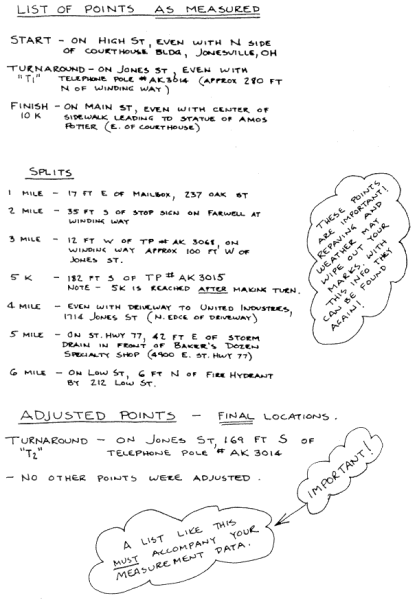 LIST OF POINTS AS MEASURED
START - ON HIGH ST, EVEN WITH N SIDE
OF COURTHOUSE BLDG, JONESVILLE, OH
TURNAROUND - ON JONES ST, EVEN WITH
"T1" TELEPHONE POLE # AK3014 (APPROX 280 FT
N OF WINDING WAY)
FINISH - ON MAIN ST, EVEN WITH CENTER OF
10 K SIDEWALK LEADING TO STATUE OF AMOS
POTIER (E. OF COURTHOUSE)
SPLITS
1 MILE - 17 FT E OF MAILBOX, 237 OAK ST
2 MILE - 35 FT S OF STOP SIGN ON FARWELL AT
WINDING WAY
3 MILE - 12 FT W OF TP # AK 3068, ON
WINDING WAY APPROX 100 FT W OF
JONES ST.
5 K - 182 FT S OF TP # AK 3015
NOTE - 5K IS REACHED AFTER MAKING TURN.
4 MILE - EVEN WITH DRIVEWAY TO UNITED INDUSTRIES,
1714 JONES ST (N. EDGE OF DRIVEWAY)
5 MILE - ON ST. HWY 77, 42 FT E OF STORM
DRAIN IN FRONT OF BAKER'S DOZEN
SPECIALTY SHOP (4900 E. ST. HWY 77)
6 MILE - ON LOW ST, 6 FT N OF FIRE HYDRANT
BY 212 LOW ST.
THESE POINTS
ARE IMPORTANT!
REPAVING AND
WEATHER MAY
WIPE OUT YOUR
MARKS. WITH
THIS INFO THEY
CAN BE FOUND
AGAIN!
ADJUSTED POINTS - FINAL LOCATIONS.
TURNAROUND - ON JONES ST, 169 FT S OF
"T2" TELEPHONE POLE # AK 3014
- NO OTHER POINTS WERE ADJUSTED.
IMPORTANT!
A LIST LIKE THIS
MUST ACCOMPANY YOUR
MEASUREMENT DATA.